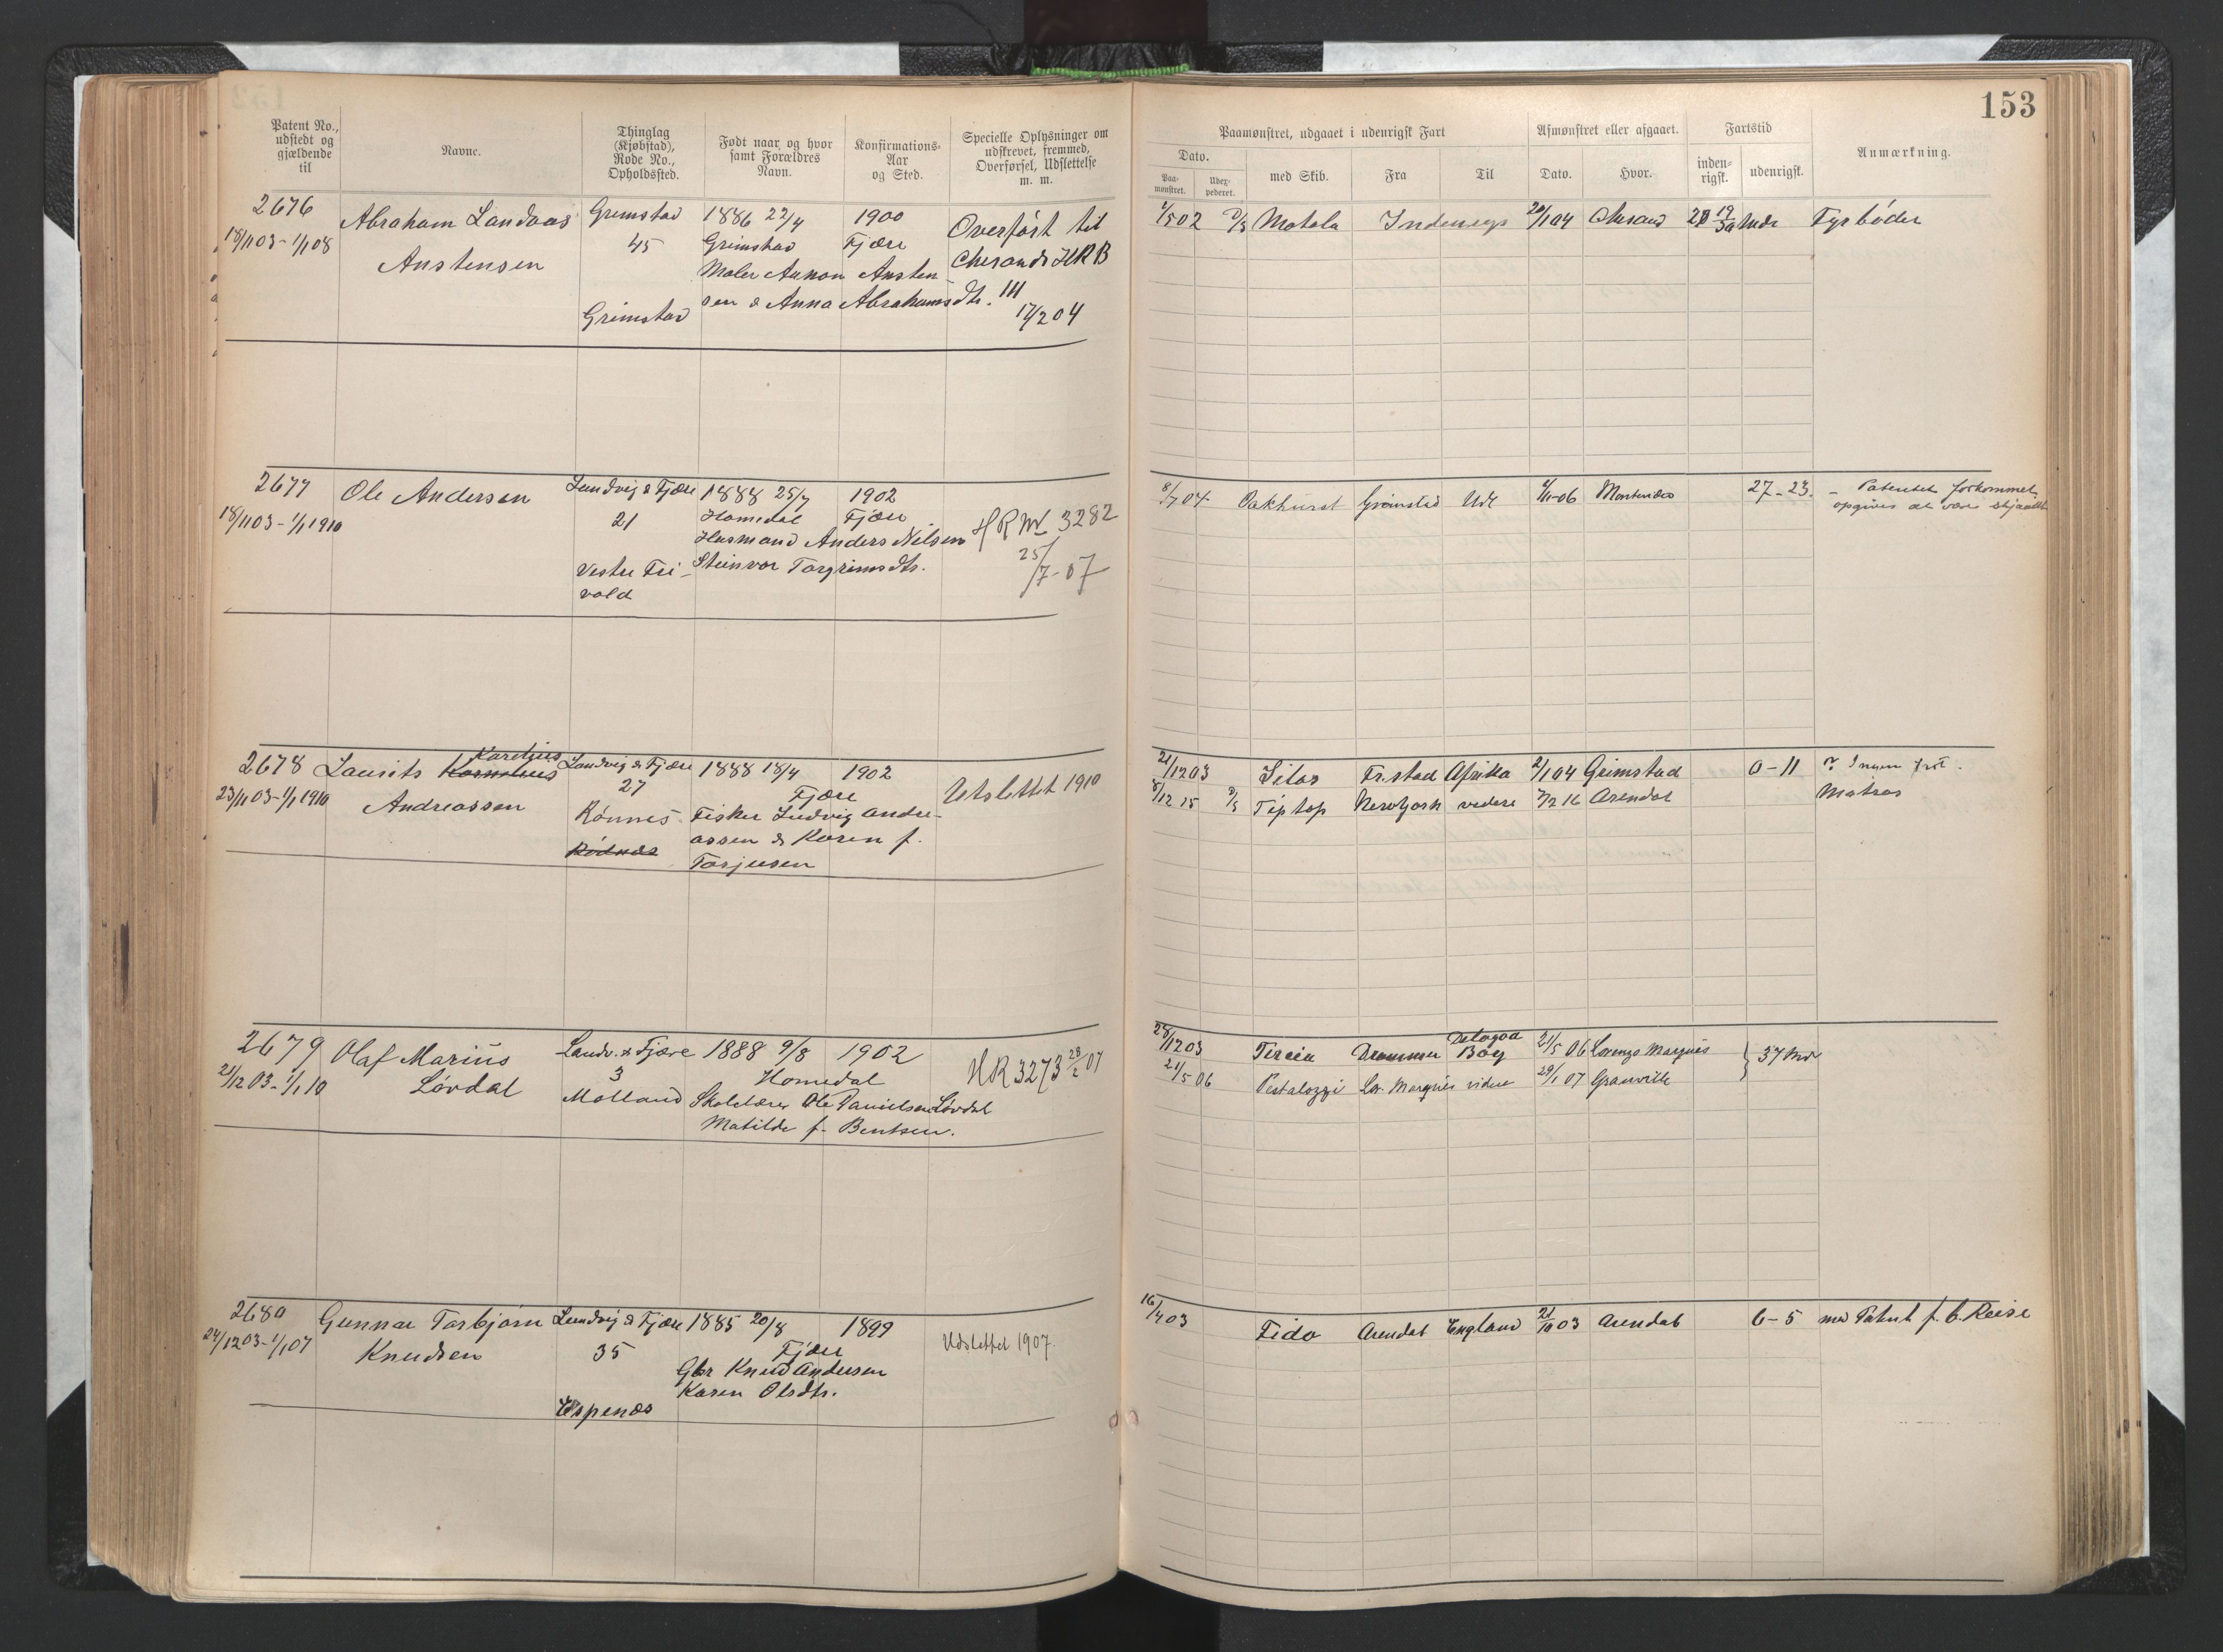 153
Patent No., udstedt og gjældende til
Navne.
Thinglag (Kjøbstad), Rode No., Opholdssted.
Født naar og hvor samt Forældres Navn.
Konfirmations-Aar og Sted.
Specielle Oplysninger om udskrevet, fremmed, Overførsel, Udslettelse m. m.
Paamønstret, udgaaet i udenrigsk Fart
Afmønstret eller afgaaet.
Fartstid
Anmærkning.
Dato.
Paa-mønstret.
Udex-pederet.
med Skib.
Fra
Til
Dato.
Hvor.
inden-rigsk.
udenrigsk.
2676
18/11 03 - 1/1 08
Abraham Landaas
Austensen
Grimstad
45
Grimstad
1886 22/4
Grimstad
Maler Aanon Austen
sen & Anna Abrahamsdtr.
1900
Fjære
Overført til
Chrsands HRB
17/2 04
02
Motala
Indenrigs
04
Chrsand
Fyrbøder
2677
18/11 03 - 1/1 1910
Ole Andersen
Landvig & Fjære
21
Vestre Fri-
vold
1888 25/7
Homedal
Husmand Anders Nilsen
Steinvor Torgrimsdtr.
1902
Fjære
HR No 3282
25/7-07
8/7 04
Oakhurst
Grimstad
Udl
06
Montevideo
27-23.
- Patentet forkommet,
opgives at være stjaalet
2678
23/11 03 - 1/1 1910
Laurits Karelius
Kornelius
Andreassen
Landvig & Fjære
27
Rønnes
Rødnæs
1888 18/4
Fisker Ludvig Andre-
assen & Karen f.
Torjusen
1902
Fjære
Utslettet 1910
21/12 03
Silas
Fr.stad
Afrika
2/1 04
Grimstad
0-11
Ingen
8/12 15
Tiptop
Newyork
videre
2/12 16
Arendal
Matros
2679
21/12 03 - 1/1 10
Olaf Marius
Løvdal
Landv. & Fjære
3
Molland
1888 9/8
Homedal
Skolelærer Ole Danielsen Løvdal
Matilde f. Bentsen.
1902
HR 3273 28/2 07
28/12 03
Drammen
Delagoa
Bay
21/5 06
Lorenzo Marquis
37 Md
21/5 06
Pestalozzi
Lor. Marquis
videre
29/1 07
Granville
2680
24/12 03 - 1/1 07
Gunnar Torbjørn
Knudsen
Landvig & Fjære
35
Espenæs
1885 20/8
Fjære
Gbr Knud Andersen
Karen Olsdtr.
1899
Udslettet 1907.
16/4 03
Fido
Arendal
England
21/10 03
Arendal
6-5
md Patent f. 6. Reise